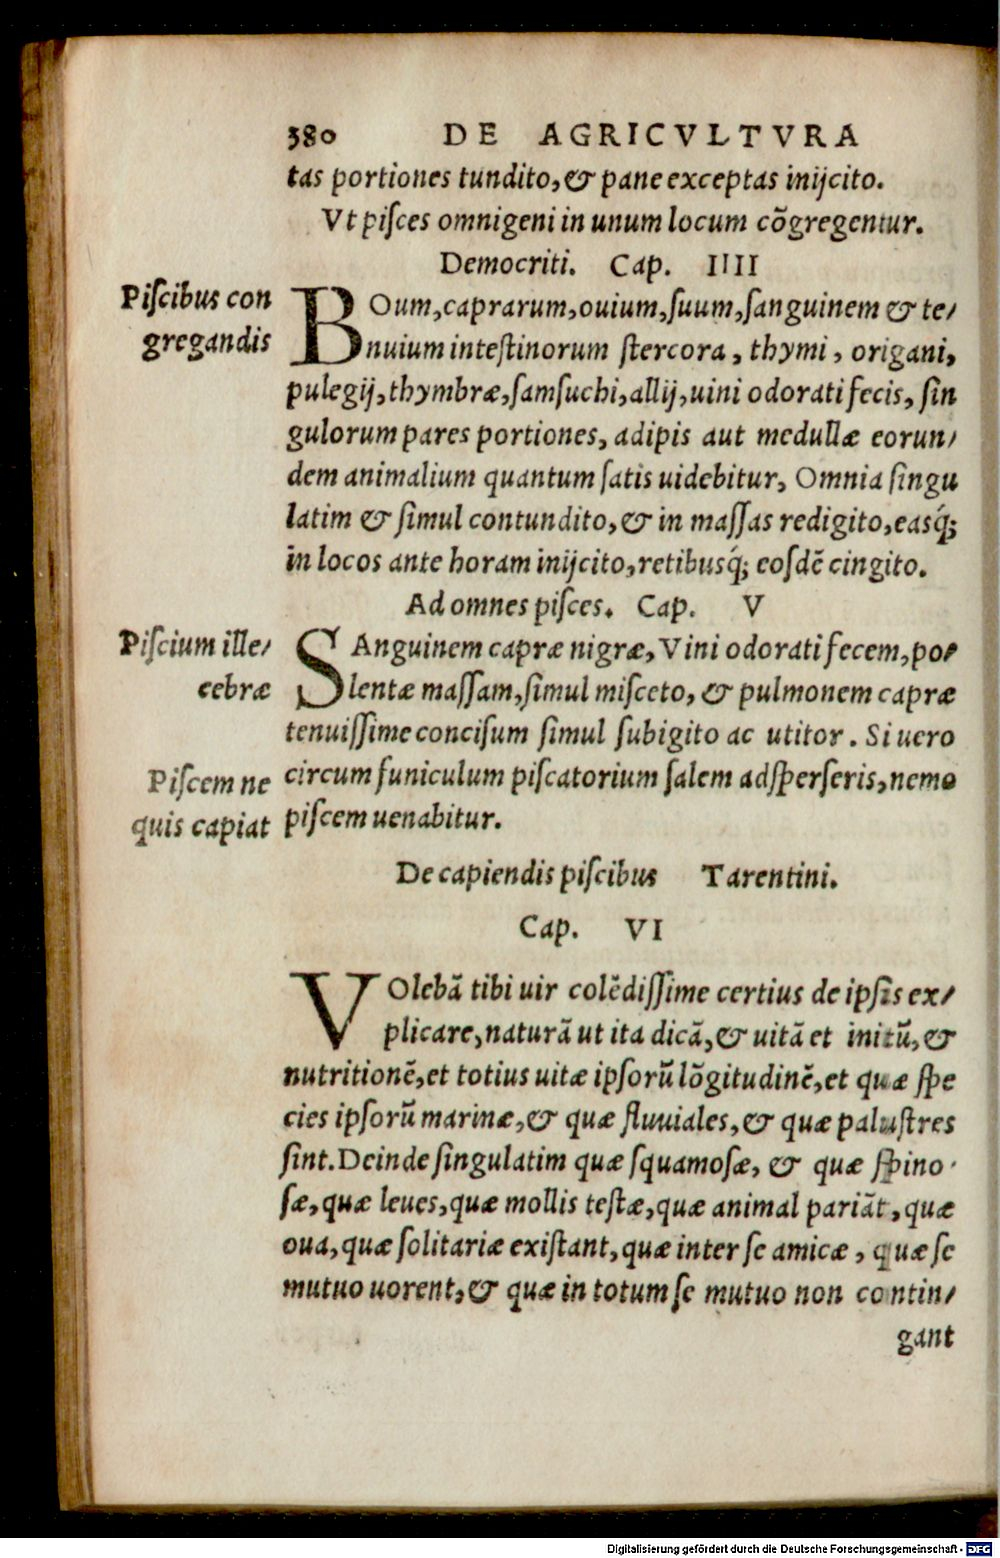 380 DE AGRICVLTVRA
tas portiones tundito, & pane exceptas inijcito.
Vt piſces omnigeni in unum locum cõgregentur.
Democriti. Cap. IIII
Piſcibus con
gregandis
BOum, caprarum, ouium, ſuum, ſanguinem & te/
nuium inteſtinorum ſtercora, thymi, origani,
pulegij, thymbræ, ſamſuchi, allij, uini odorati fecis, ſin
gulorum pares portiones, adipis aut medullæ eorun/
dem animalium quantum ſatis uidebitur, Omnia ſingu
latim & ſimul contundito, & in maſſas redigito, easq́;
in locos ante horam inijcito, retibusq́; eoſdẽ cingito.
Ad omnes piſces. Cap. V
Piſcium ille/
cebræ
SAnguinem capræ nigræ, Vini odorati fecem, po/
lentæ maſſam, ſimul miſceto, & pulmonem capræ
tenuiſſime conciſum ſimul ſubigito ac utitor. Si uero
Piſcem ne
quis capiat
circum funiculum piſcatorium ſalem adſperſeris, nemo
piſcem uenabitur.
De capiendis piſcibus Tarentini.
Cap. VI
VOlebã tibi uir colẽdiſſime certius de ipſis ex/
plicare, naturã ut ita dicã, & uitã et initũ, &
nutritionẽ, et totius uitæ ipſorũ lõgitudinẽ, et quæ ſpe
cies ipſorũ marinæ, & quæ fluuiales, & quæ paluſtres
ſint. Deinde ſingulatim quæ ſquamoſæ, & quæ ſpino-
ſæ, quæ leues, quæ mollis teſtæ, quæ animal pariãt, quæ
oua, quæ ſolitariæ exiſtant, quæ inter ſe amicæ, quæ ſe
mutuo uorent, & quæ in totum ſe mutuo non contin/
gant
Digitalisierung gefördert durch die Deutsche Forschungsgemeinschaft - DFG